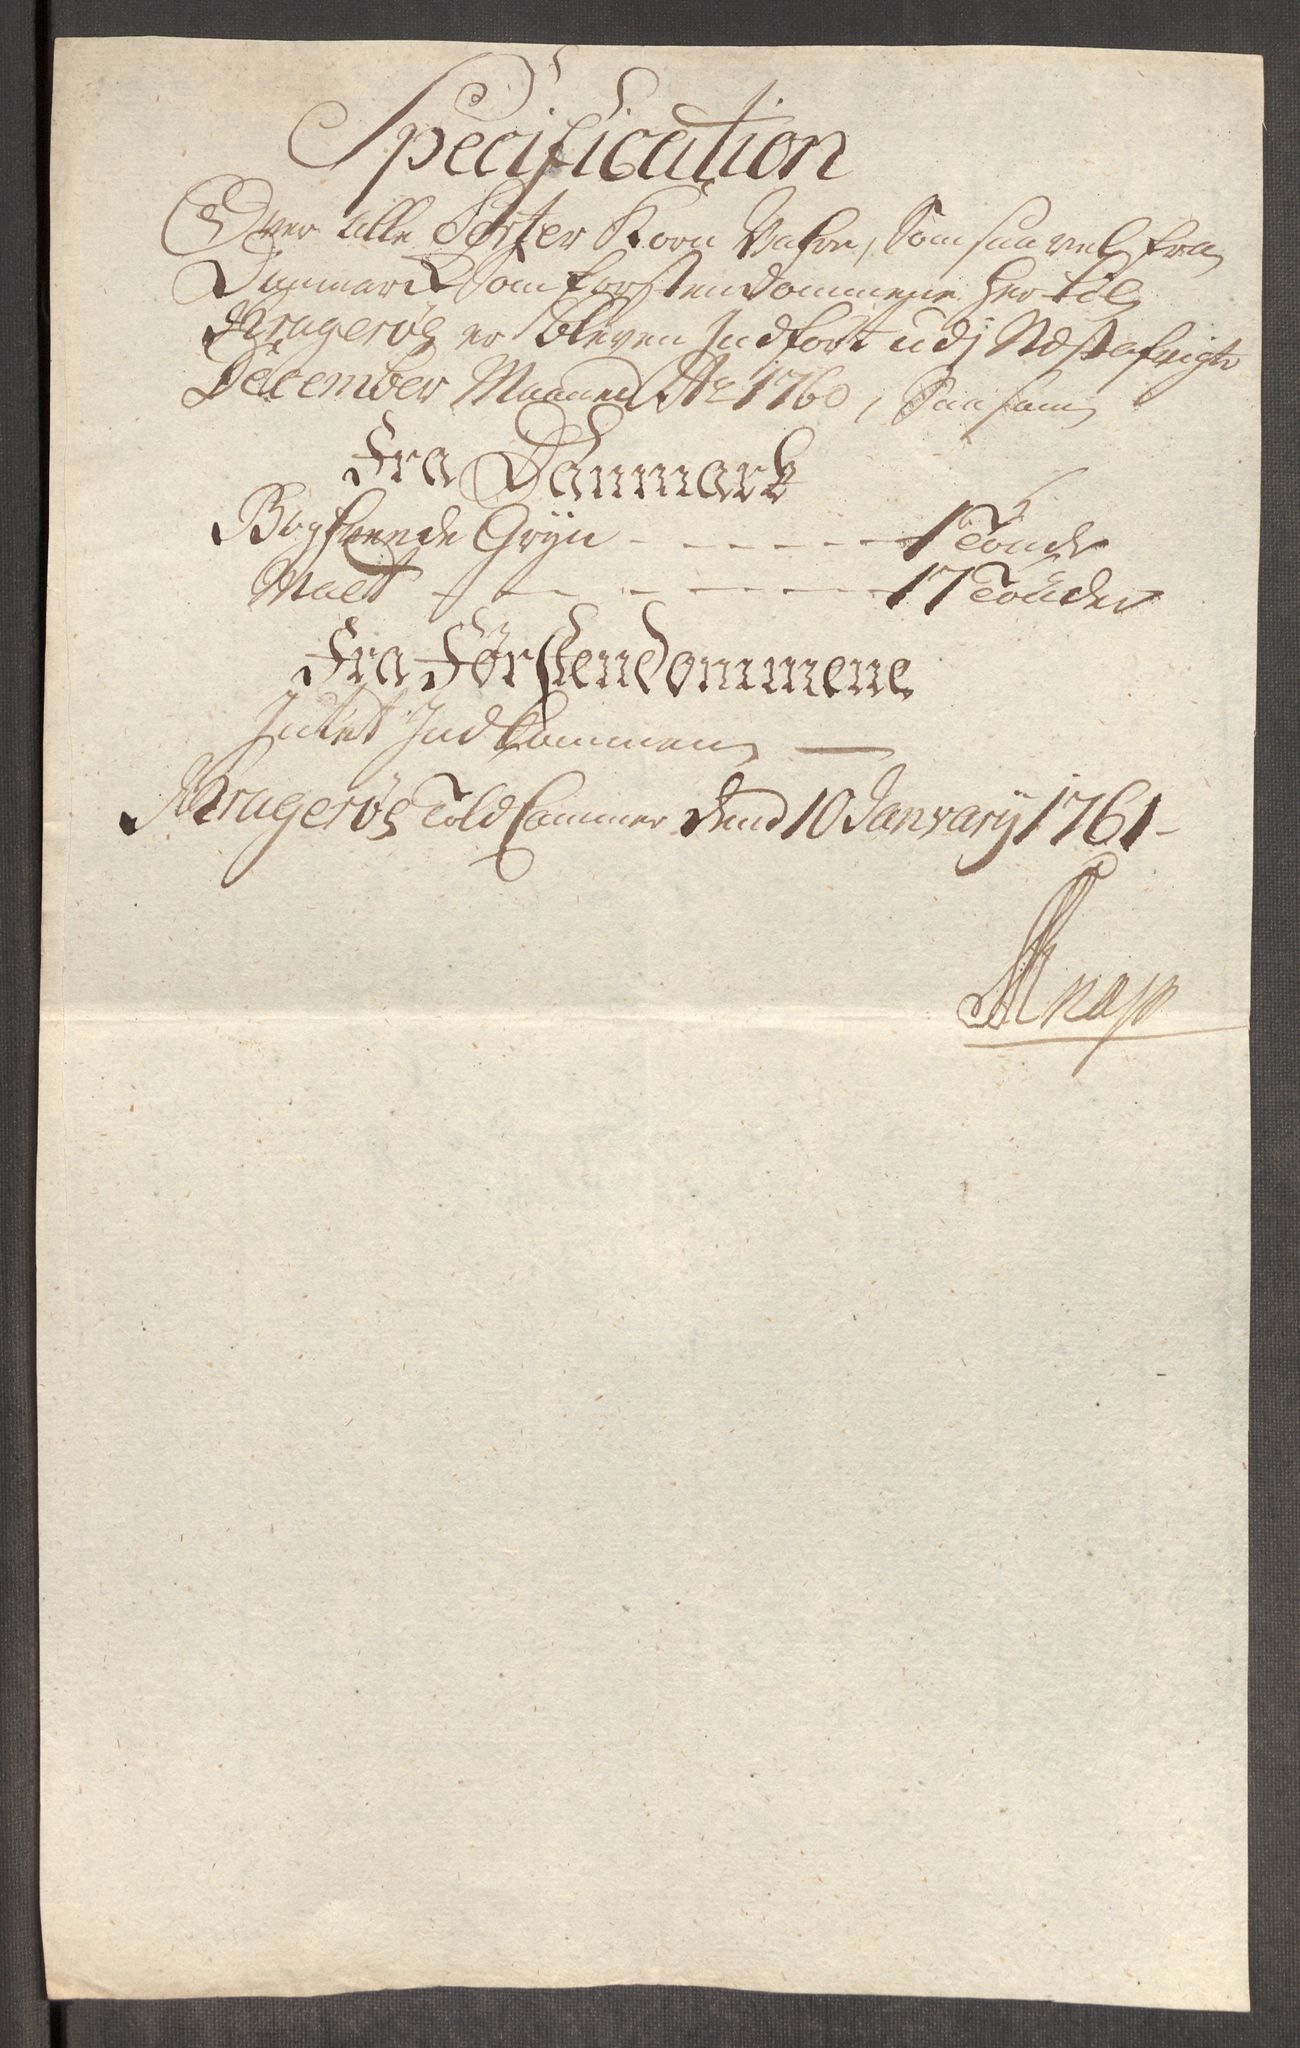 Specification
Over alle Sorter Korn Vahre, Som saavel fra
Danmarck som forstendommene her til
Kragerøe er bleven Indfört udj Næstafvigte
December Maaned Ao 1760, Saasom
Fra Danmark
Boghvede Gryn - - - - - - 1 Tönde
Malt - - - - - - - 17 Tönder
Fra Førstendommene
Intet Indkommen —
Kragerøe Told Cammer Dend 10 January 1761 -
Knap